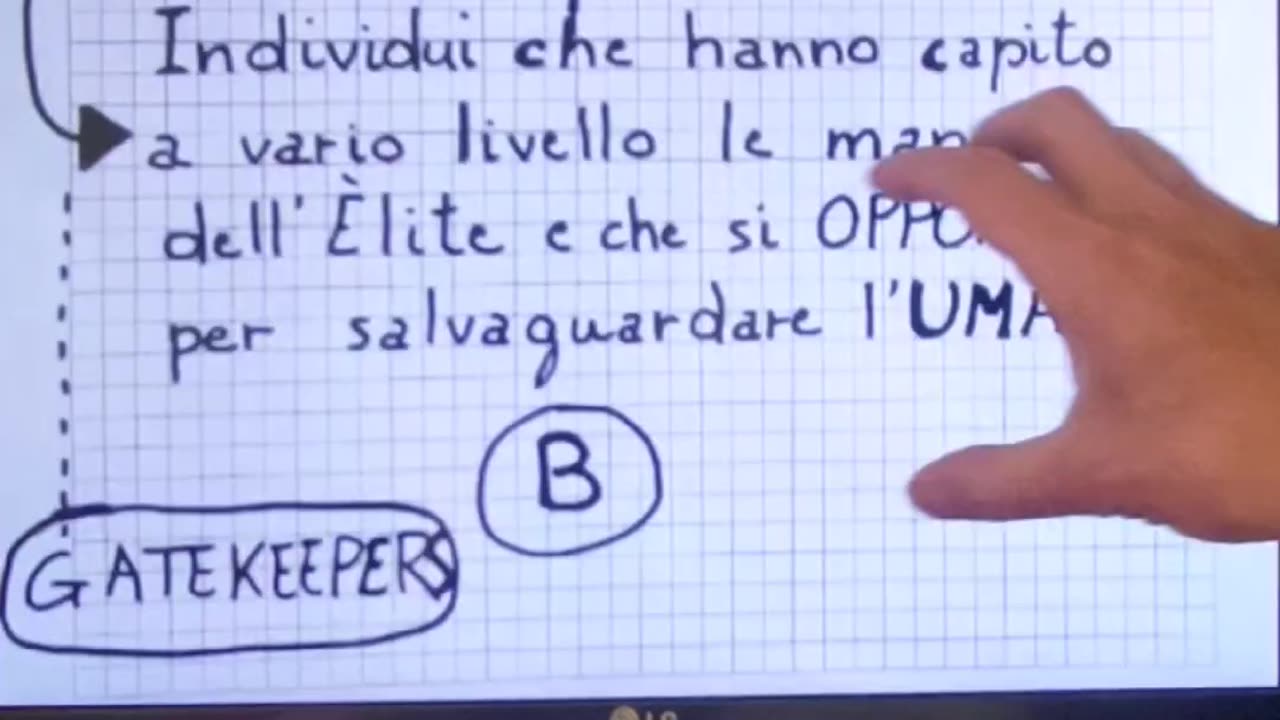 Individui che hanno capito
a vario livello le
dell'Èlite e che si
per salvaguardare
B
GATEKEEPERS